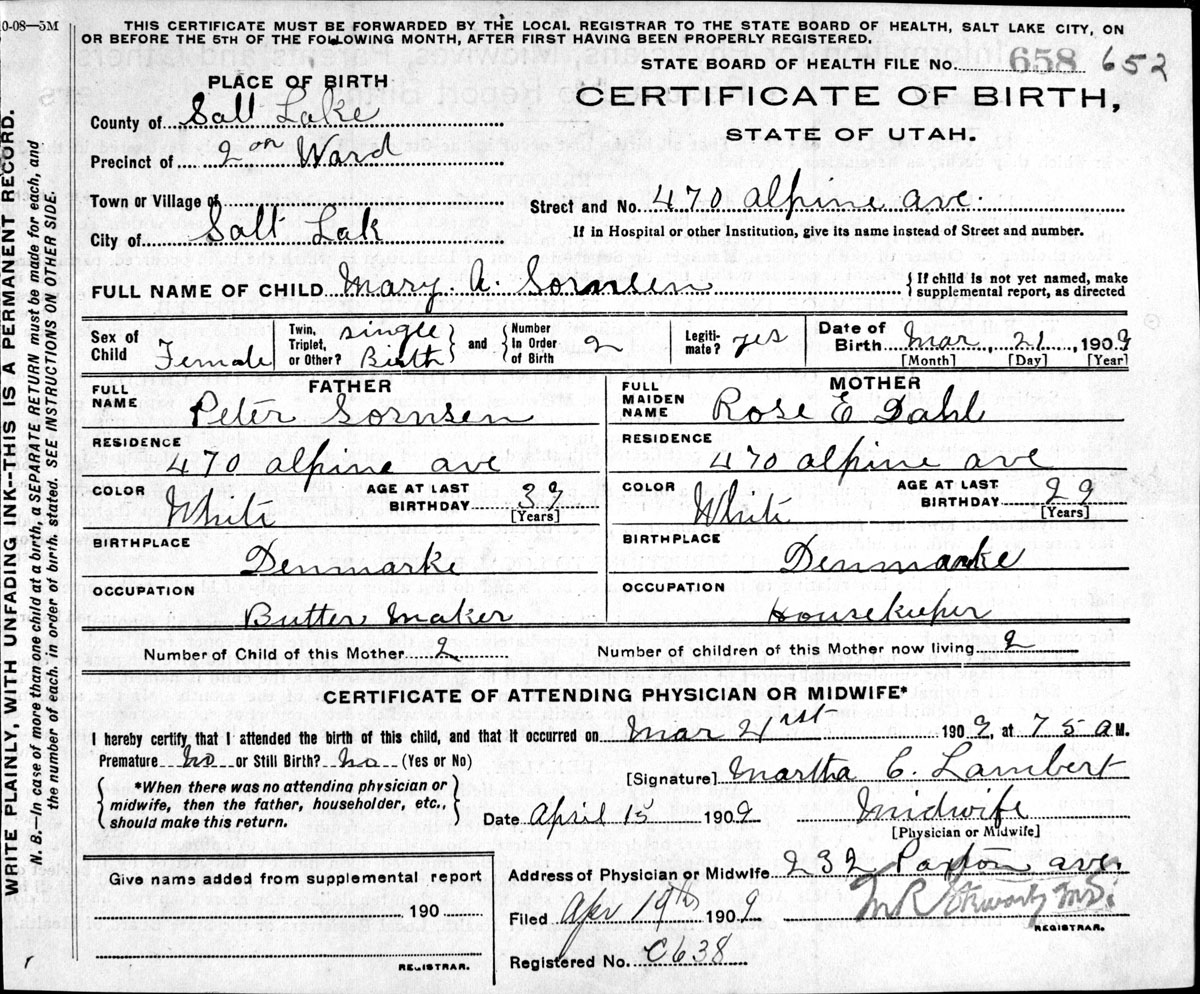 0-08—5M
THIS CERTIFICATE MUST BE FORWARDED BY THE LOCAL REGISTRAR TO THE STATE BOARD OF HEALTH, SALT LAKE CITY, ON
OR BEFORE THE 5TH OF THE FOLLOWING MONTH, AFTER FIRST HAVING BEEN PROPERLY REGISTERED.
STATE BOARD OF HEALTH FILE No. 658 652
PLACE OF BIRTH
CERTIFICATE OF BIRTH,
STATE OF UTAH.
County of Salt Lake
Precinct of 2on Ward
Town or Village of
Street and No. 470 alpine ave.
City of Salt Lak
If in Hospital or other Institution, give its name instead of Street and number.
FULL NAME OF CHILD Mary. A. Sornsen
{If child is not yet named, make
supplemental report, as directed
Sex of Child Female
Twin, Triplet, or Other? single Birth
and
Number In Order of Birth 2
Legiti-mate? yes
Date of Birth Mar, 21, 1909
[Month] [Day] [Year]
FATHER
FULL NAME Peter Sornsen
RESIDENCE
470 alpine ave
COLOR White
AGE AT LAST BIRTHDAY 39
[Years]
BIRTHPLACE
Denmarke
OCCUPATION
Butter Maker
MOTHER
FULL MAIDEN NAME Rose E Dahl
RESIDENCE
470 alpine ave
COLOR White
AGE AT LAST BIRTHDAY 29
[Years]
BIRTHPLACE
Denmarke
OCCUPATION
Housekeeper
Number of Child of this Mother 2
Number of children of this Mother now living 2
CERTIFICATE OF ATTENDING PHYSICIAN OR MIDWIFE*
I hereby certify that I attended the birth of this child, and that it occurred on Mar 21st 1909, at 7 5 a M.
Premature No or Still Birth? No (Yes or No)
*When there was no attending physician or
midwife, then the father, householder, etc.,
should make this return.
[Signature] Martha C. Lambert
Date April 15 1909
Midwife
[Physician or Midwife]
Give name added from supplemental report
190
REGISTRAR.
Address of Physician or Midwife 232 Paxton ave.
Filed Apr 19th 1909
REGISTRAR.
Registered No. C638
WRITE PLAINLY, WITH UNFADING INK--THIS IS A PERMANENT RECORD.
N. B.—In case of more than one child at a birth, a SEPARATE RETURN must be made for each, and
the number of each. in order of birth. stated. SEE INSTRUCTIONS ON OTHER SIDE.